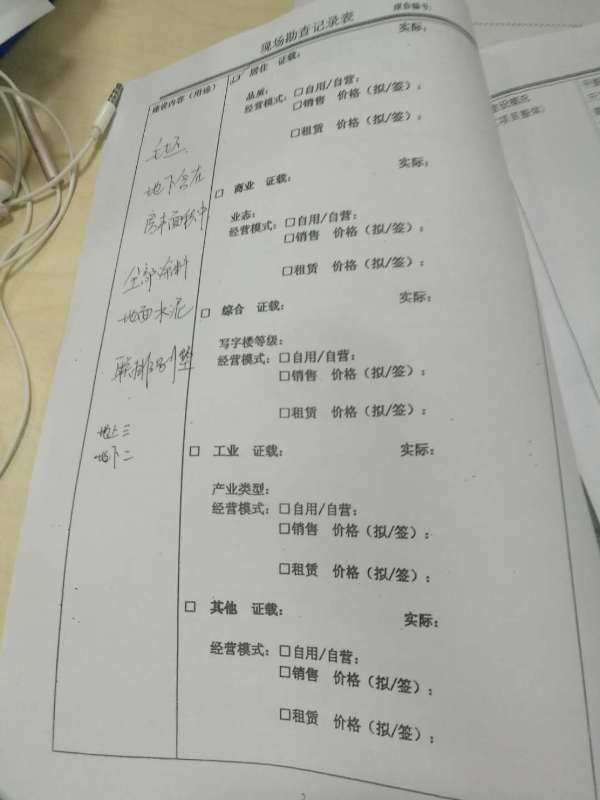 现场勘查记录表
报告编号：
建设内容（用途）
□ 居住 证载： 实际：
品质：
经营模式：□自用/自营：
□销售 价格（拟/签）：
□租赁 价格（拟/签）：
毛坯
地下含在
房本面积中
全部涂料
地面水泥
联排别墅
地上三
地下二
□ 商业 证载： 实际：
业态：
经营模式：□自用/自营：
□销售 价格（拟/签）：
□租赁 价格（拟/签）：
□ 综合 证载： 实际：
写字楼等级：
经营模式：□自用/自营：
□销售 价格（拟/签）：
□租赁 价格（拟/签）：
□ 工业 证载： 实际：
产业类型：
经营模式：□自用/自营：
□销售 价格（拟/签）：
□租赁 价格（拟/签）：
□ 其他 证载： 实际：
经营模式：□自用/自营：
□销售 价格（拟/签）：
□租赁 价格（拟/签）：